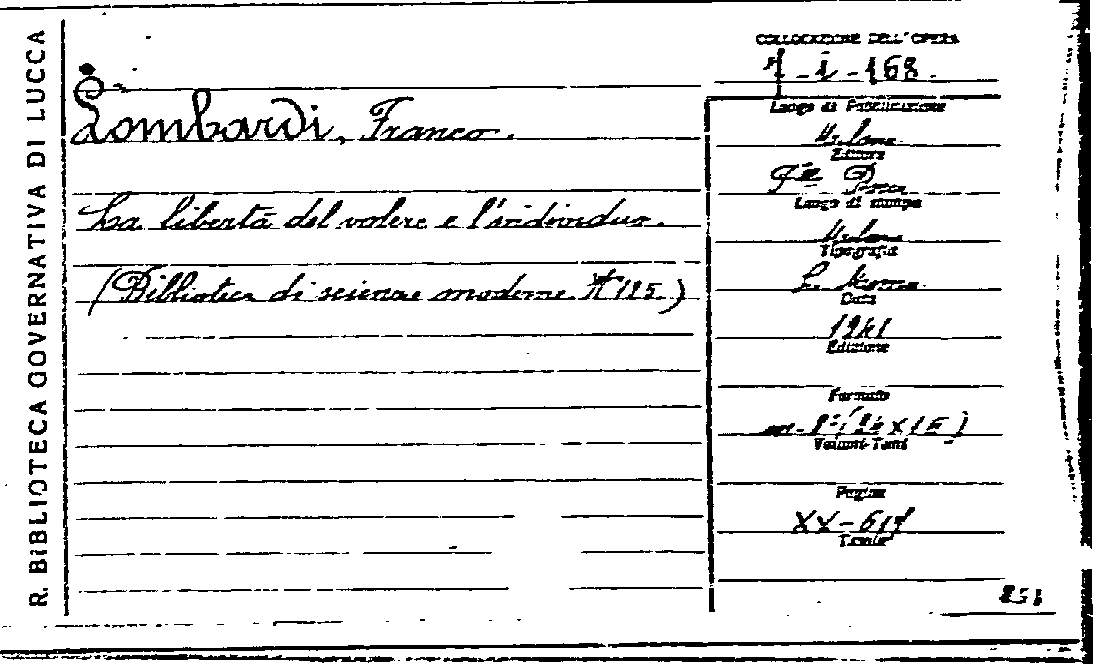 R. BIBLIOTECA GOVERNATIVA DI LUCCA
COLLOCAZIONE DELL'OPERA
7-i-168.
Lombardi, Franco.
La libertà del volere e l'individuo.
(Biblioteca di scienze moderne N 125.)
Luogo di Pubblicazione
Milano
Editore
F.lli Bocca
Luogo di stampa
Milano
Tipografia
Data
1941
Edizione
Formato
(24×15)
Volumi-Tomi
Pagine
XX-617
Tavole
851